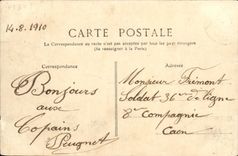 14.8.1910
CARTE POSTALE
La Correspondance au verso n'est pas acceptée par tous les pays étrangers
(Se renseigner à la Poste)
Correspondance
Adresse
Bonjours
aux
Copains
Peugnet
Monsieur Frémont
Soldat 36me de ligne
8e Compagnie
Caen